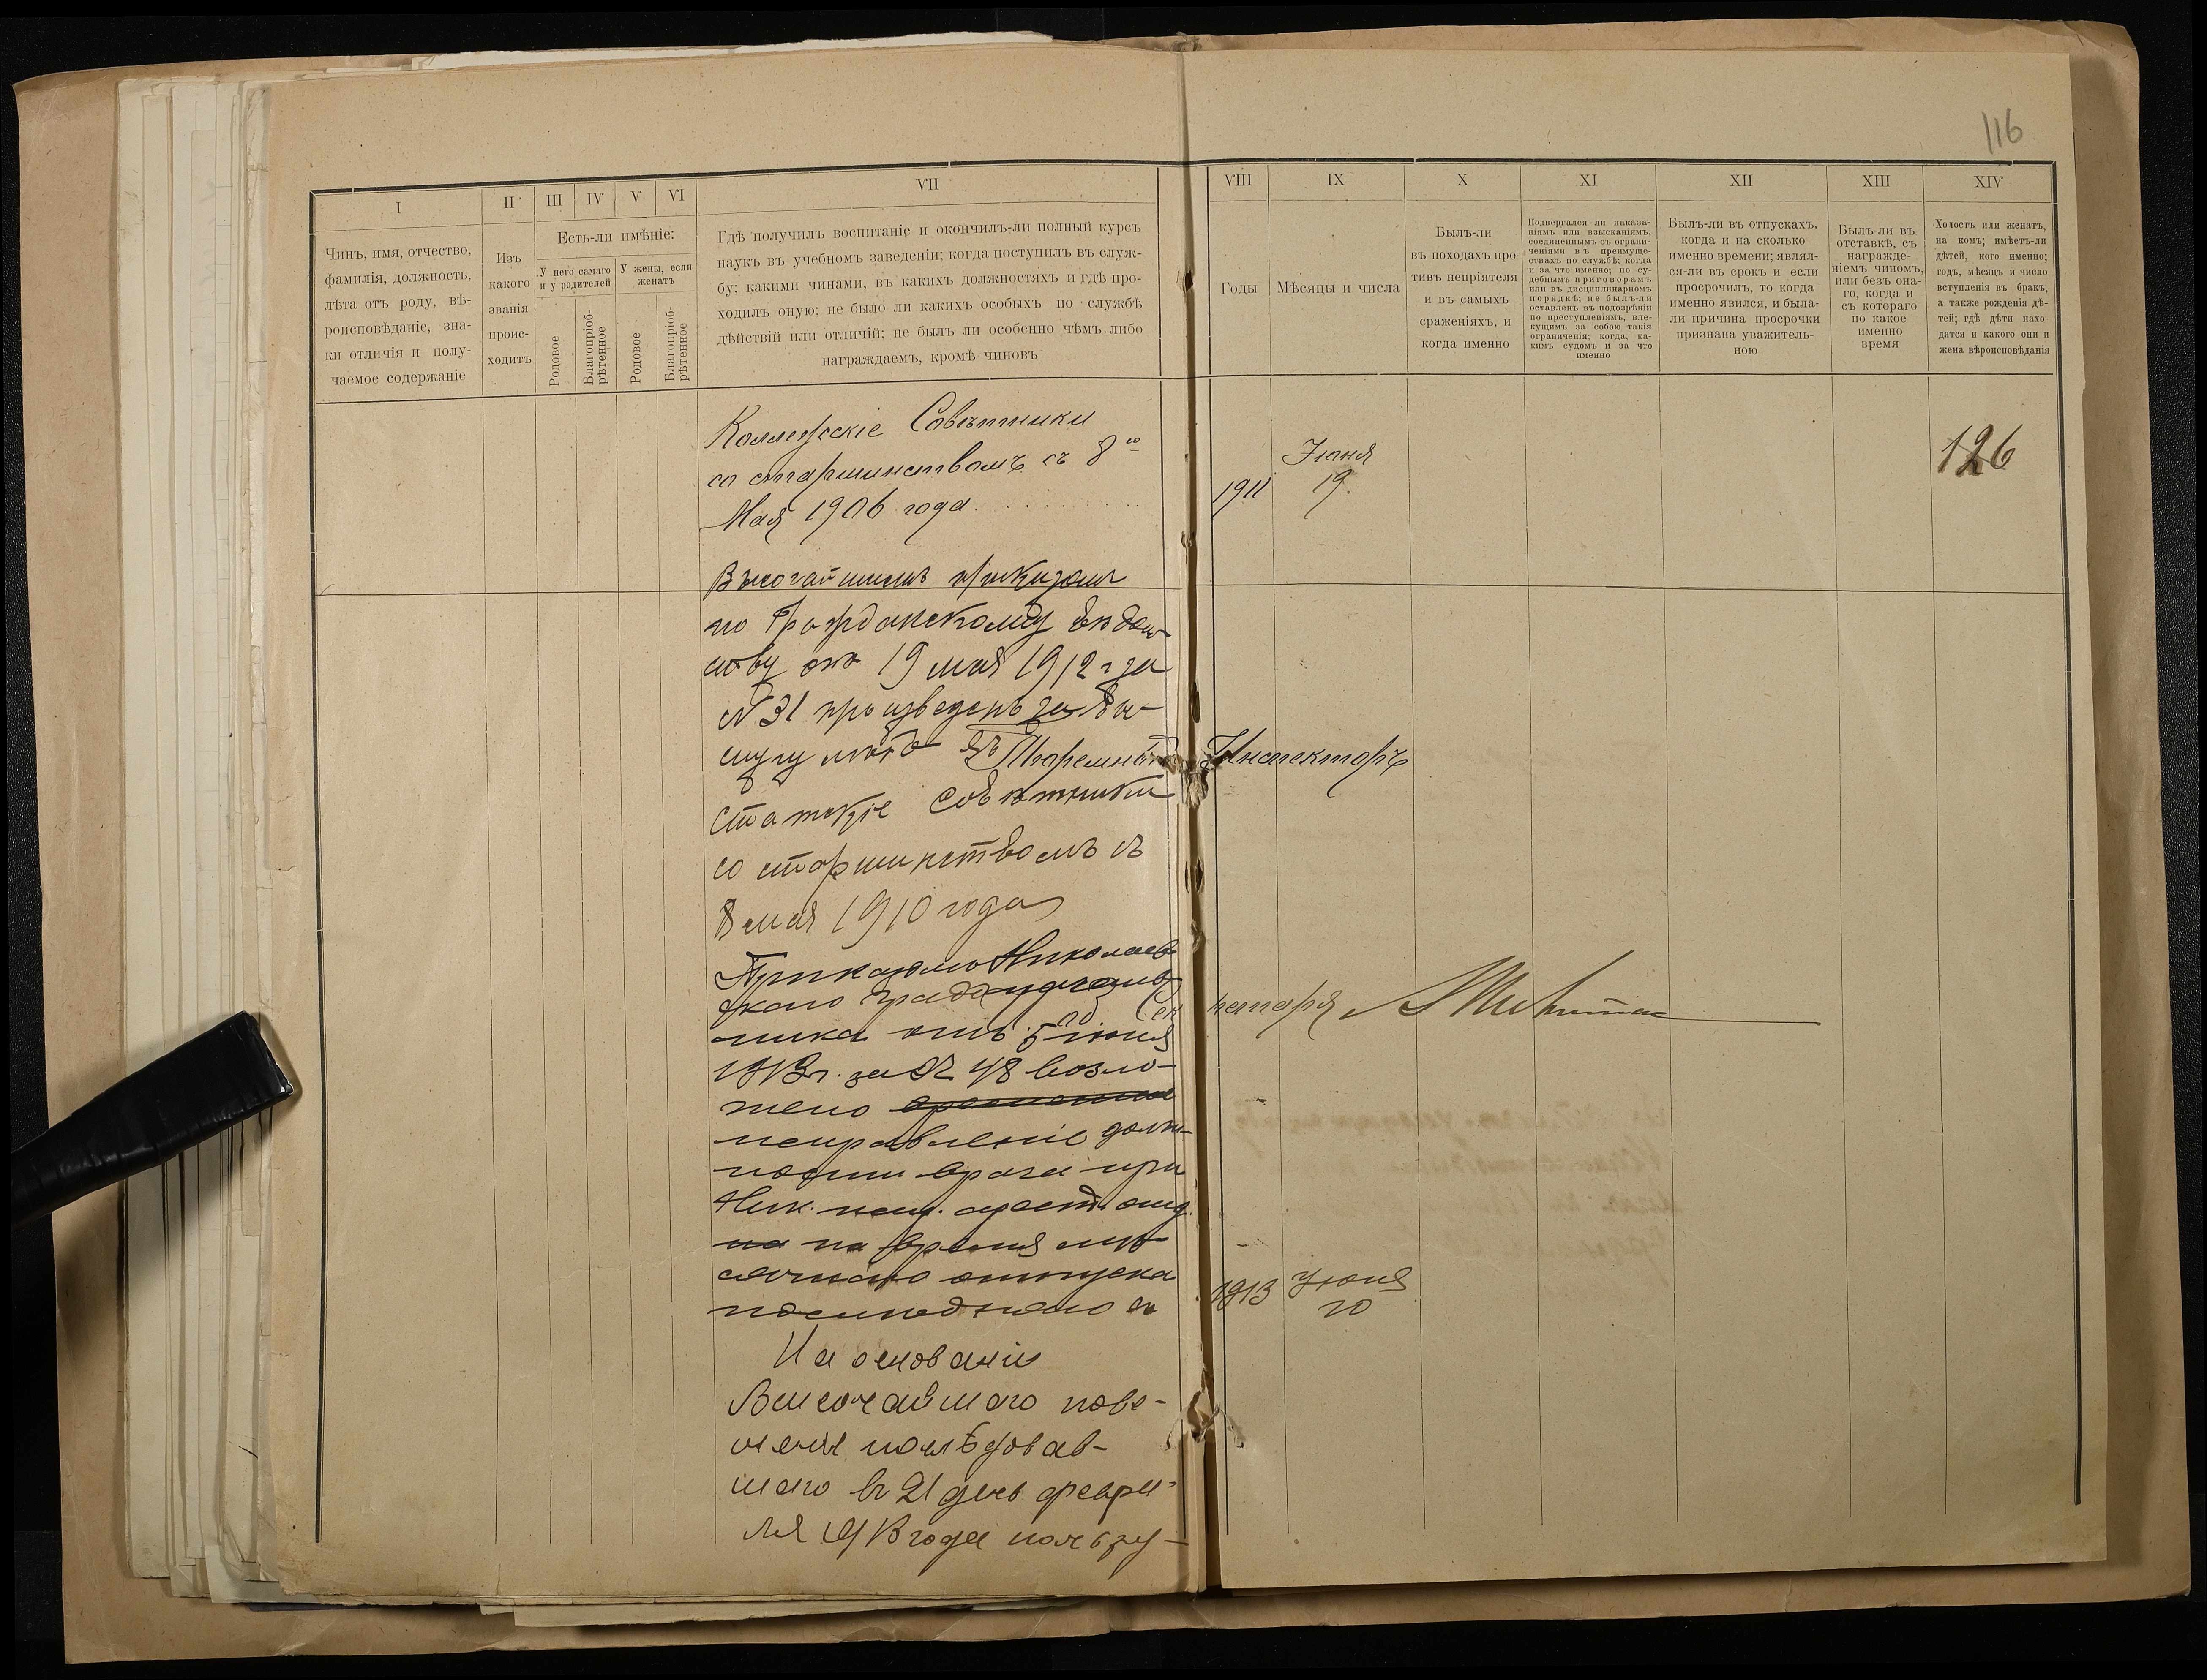 116
I
II
III
IV
V
VI
VII
VIII
IX
X
XI
XII
XIII
XIV
Чинъ, имя, отчество,
фамилія, должность,
лѣта отъ роду, вѣ-
роисповѣданіе, зна-
ки отличія и полу-
чаемое содержаніе
Изъ
какого
званія
проис-
ходитъ
Есть-ли имѣніе:
У него самаго
и у родителей
У жены, если
женатъ
Родовое
Благопріоб-
рѣтенное
Родовое
Благопріоб-
рѣтенное
Гдѣ получилъ воспитаніе и окончилъ-ли полный курсъ
наукъ въ учебномъ заведеніи; когда поступилъ въ служ-
бу; какими чинами, въ какихъ должностяхъ и гдѣ про-
ходилъ оную; не было ли какихъ особыхъ по службѣ
дѣйствій или отличій; не былъ ли особенно чѣмъ либо
награждаемъ, кромѣ чиновъ
Годы
Мѣсяцы и числа
Былъ-ли
въ походахъ про-
тивъ непріятеля
и въ самыхъ
сраженіяхъ, и
когда именно
Подвергался-ли наказа-
ніямъ или взысканіямъ,
соединеннымъ съ ограни-
ченіями въ преимуще-
ствахъ по службѣ; когда
и за что именно; по су-
дебнымъ приговорамъ
или въ дисциплинарномъ
порядкѣ; не былъ-ли
оставленъ въ подозрѣніи
по преступленіямъ, вле-
кущимъ за собою такія
ограниченія; когда, ка-
кимъ судомъ и за что
именно
Былъ-ли въ отпускахъ,
когда и на сколько
именно времени; являл-
ся-ли въ срокъ и если
просрочилъ, то когда
именно явился, и была-
ли причина просрочки
признана уважитель-
ною
Былъ-ли въ
отставкѣ, съ
награжде-
ніемъ чиномъ,
или безъ она-
го, когда и
съ котораго
по какое
именно
время
Холостъ или женатъ,
на комъ; имѣетъ-ли
дѣтей, кого именно;
годъ, мѣсяцъ и число
вступленія въ бракъ,
а также рожденія дѣ-
тей; гдѣ дѣти нахо
дятся и какого они и
жена вѣроисповѣданія
Коллежскіе Совѣтники
со старшинствомъ съ 8го
Мая 1906 года
1911
Іюня
19.
126
Высочайшимъ приказомъ
по Гражданскому вѣдом-
ству отъ 19 мая 1912 г за
N 31 произведенъ за вы-
слугу лѣтъ въ
Тюремный Инспекторъ
Статскіе Совѣтники
со старшинствомъ съ
8 мая 1910 года
Приказомъ Николаев
скаго градоначаль
ника отъ 5 іюня
1913 г. за № 48 возло-
жено временное
исправленіе долж-
ности врача при
Ник. исп. арест. отд.
на на время мѣ-
сячнаго отпуска
послѣдняго съ
1913
Іюня
10
Секретарь
На основаніи
Высочайшаго пове-
ленія послѣдовав-
шаго въ 21 день февра-
ля 1913 года пользу-